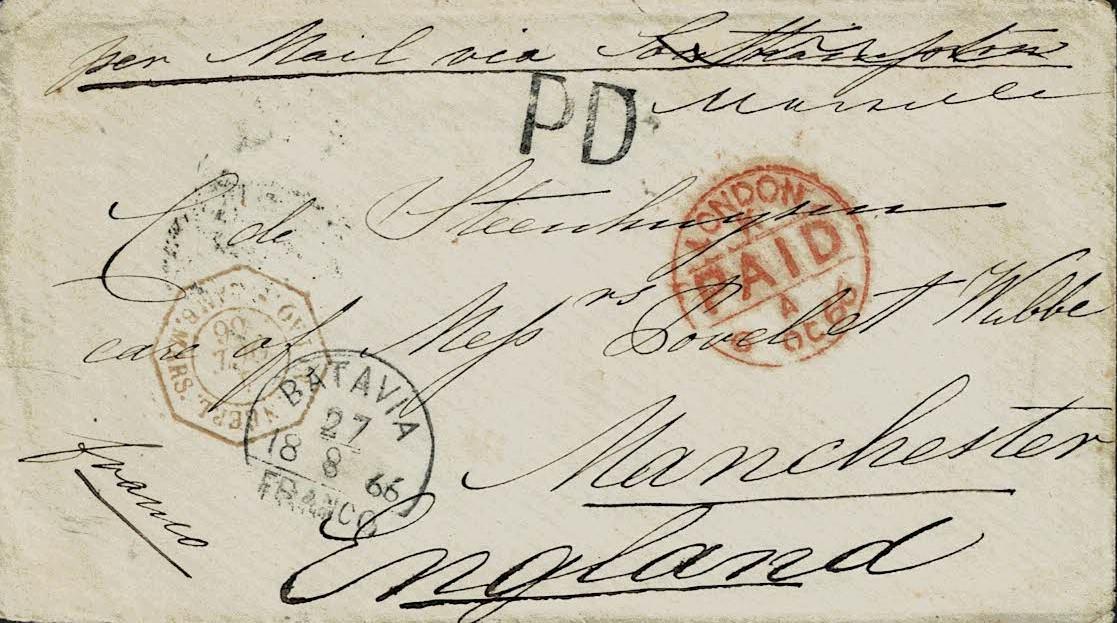 per Mail via Southampton
Marseille
PD
C de Steenhuysen
LONDON
PAID
OC 66
care of Messrs Lovelett Wibbe
BATAVIA
27
8
18 66
FRANCO
Manchester
franco
England